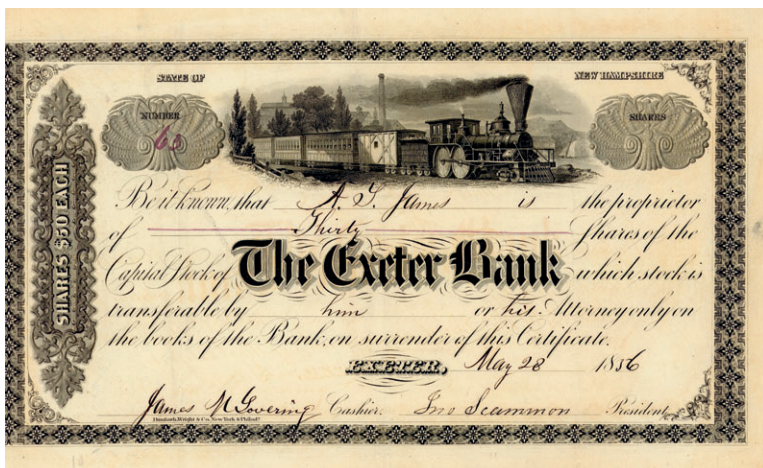 STATE OF NEW HAMPSHIRE
NUMBER SHARES
60
SHARES $50 EACH
Be it known, that A. T. James is the proprietor
of Thirty Shares of the
Capital Stock of The Exeter Bank which stock is
transferable by him or his Attorney only on
the books of the Bank, on surrender of this Certificate.
EXETER, May 28 1856
James M Lovering Cashier. Jno Scammon President
Danforth, Wright & Co. New York & Philada